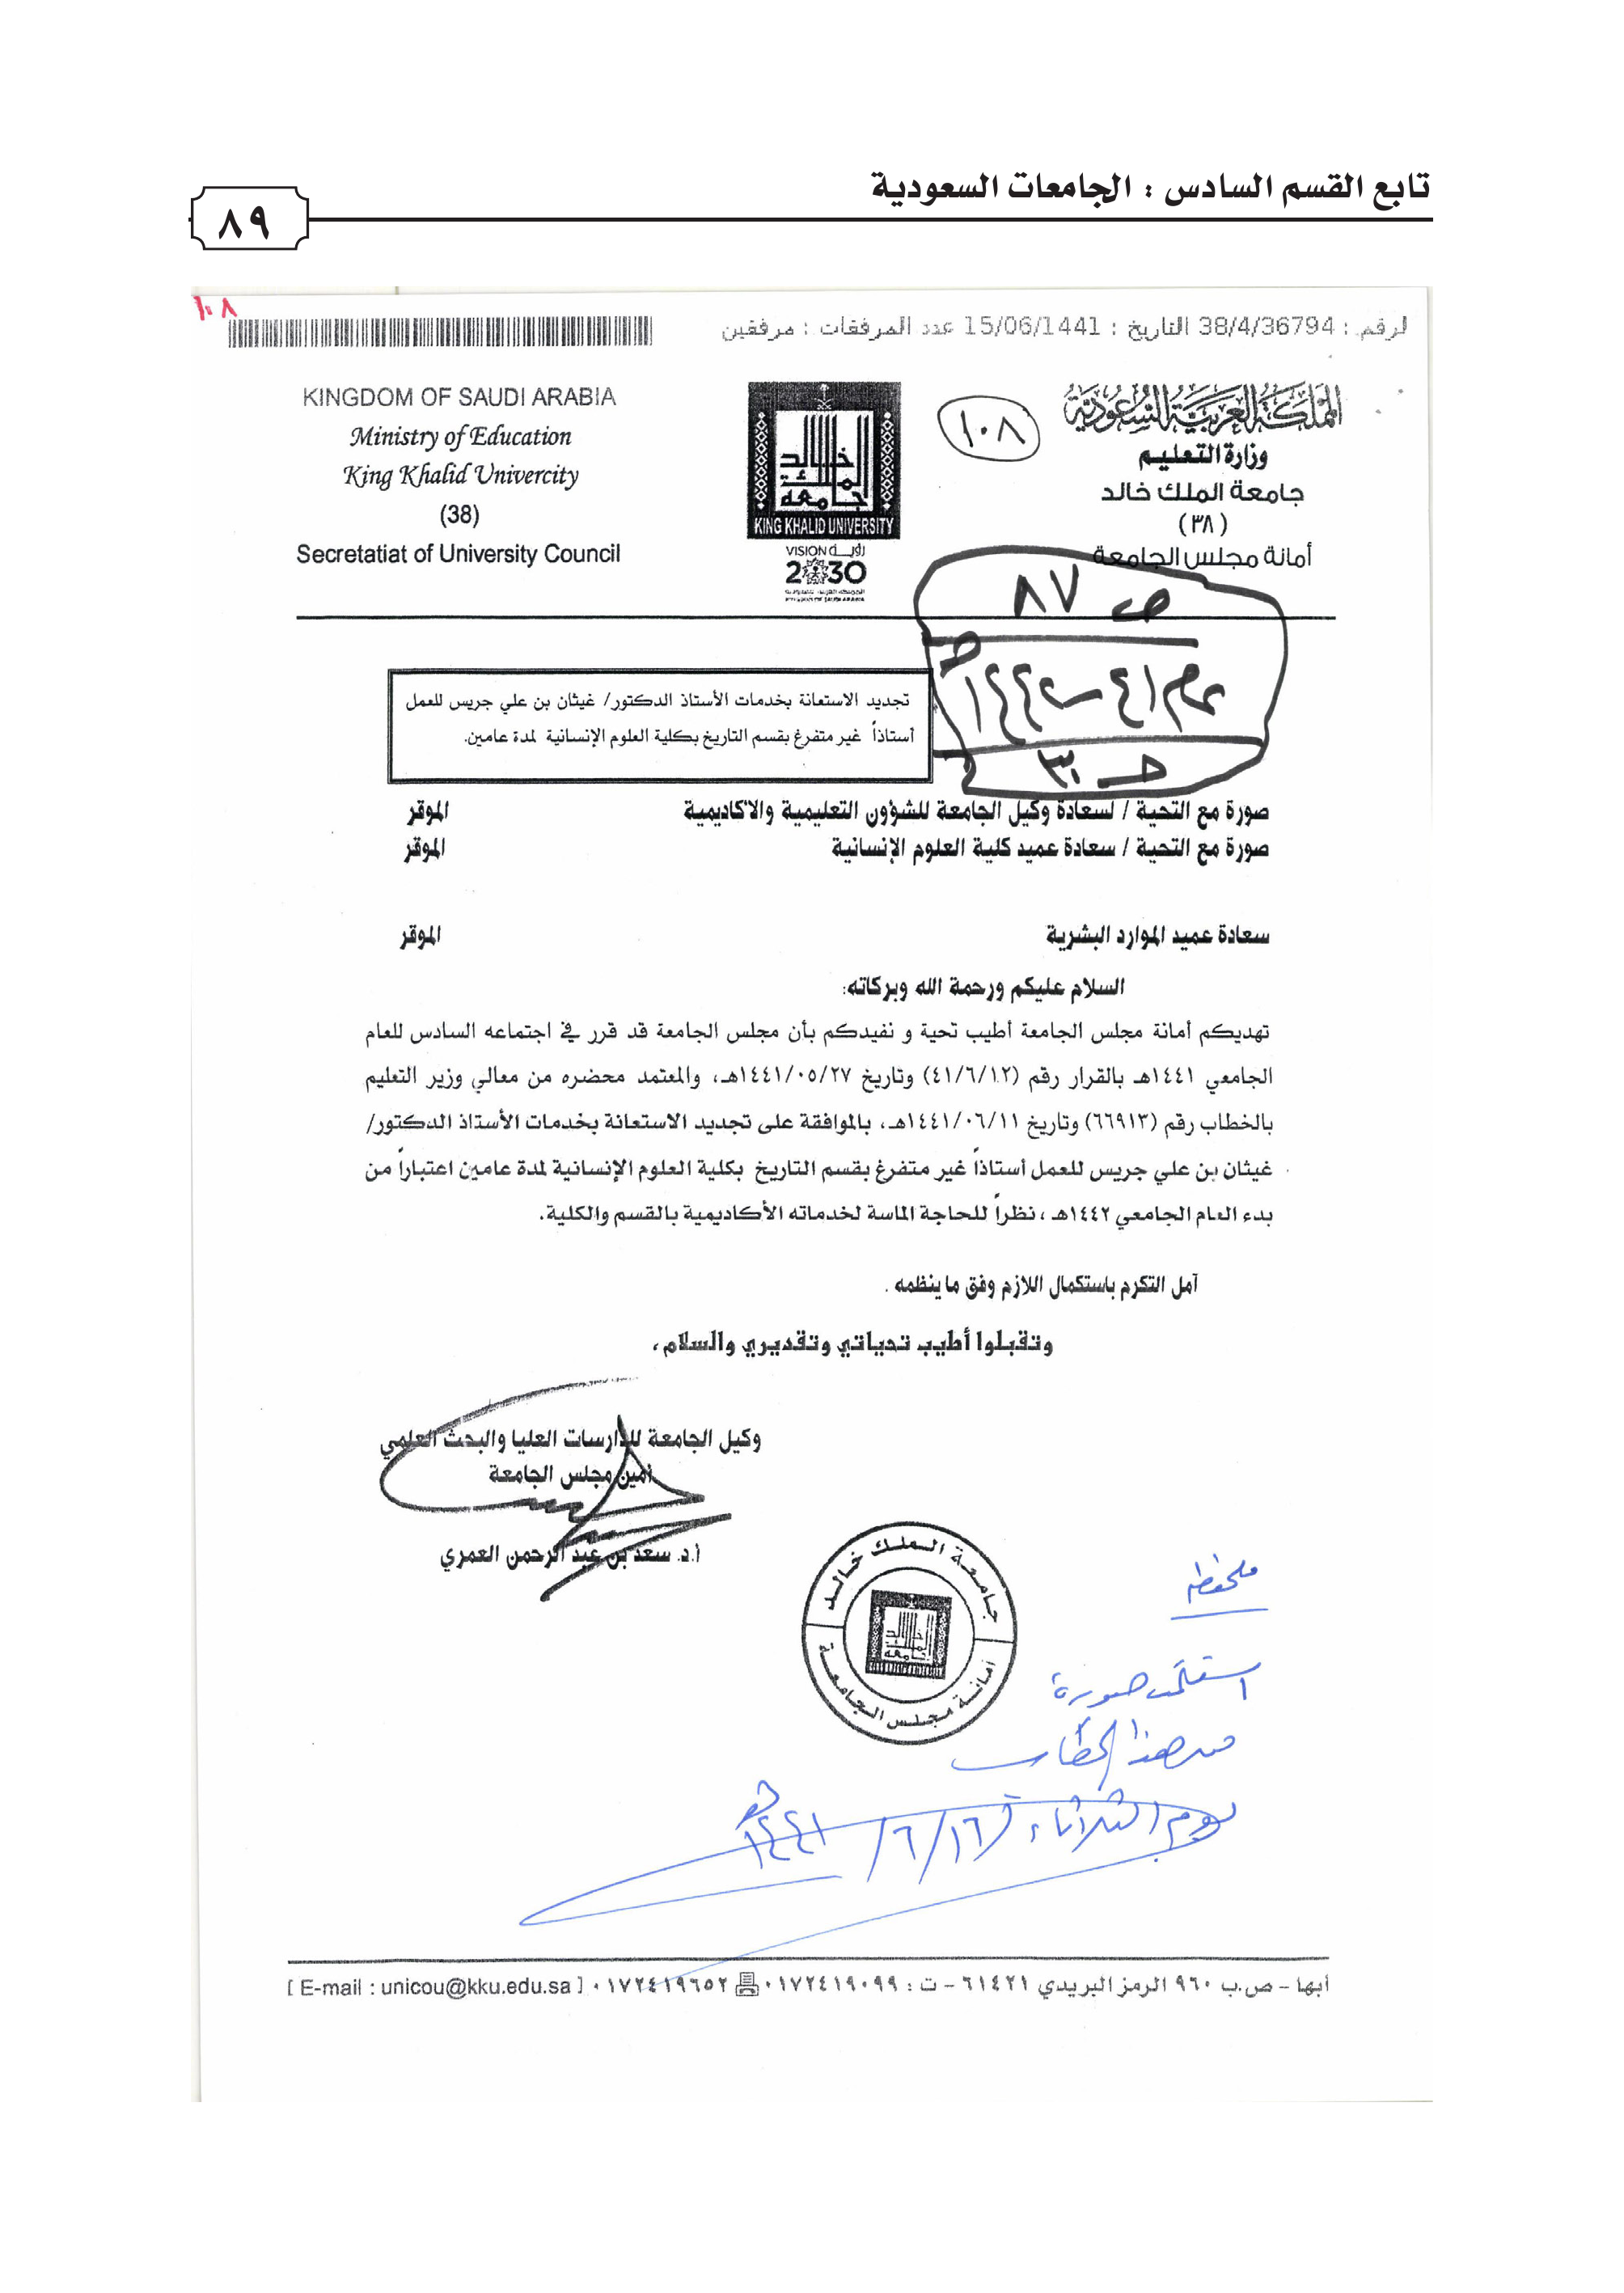 تابع القسم السادس : الجامعات السعودية
٨٩
١٠٨
لرقم : 38/4/36794 التاريخ : 15/06/1441 عدد المرفقات : مرفقين
KINGDOM OF SAUDI ARABIA
Ministry of Education
King Khalid Univercity
(38)
Secretatiat of University Council
جامعة الملك خالد
KING KHALID UNIVERSITY
VISION رؤيـــة
2030
١٠٨
المملكة العربية السعودية
وزارة التعليم
جامعة الملك خالد
(٣٨)
أمانة مجلس الجامعة
ص ٨٧
تجديد الاستعانة بخدمات الأستاذ الدكتور/ غيثان بن علي جريس للعمل
أستاذاً غير متفرغ بقسم التاريخ بكلية العلوم الإنسانية لمدة عامين.
صورة مع التحية / لسعادة وكيل الجامعة للشؤون التعليمية والاكاديمية الموقر
صورة مع التحية / سعادة عميد كلية العلوم الإنسانية الموقر
سعادة عميد الموارد البشرية الموقر
السلام عليكم ورحمة الله وبركاته:
تهديكم أمانة مجلس الجامعة أطيب تحية و نفيدكم بأن مجلس الجامعة قد قرر في اجتماعه السادس للعام
الجامعي ١٤٤١هـ بالقرار رقم (٤١/٦/١٢) وتاريخ ١٤٤١/٠٥/٢٧هـ، والمعتمد محضره من معالي وزير التعليم
بالخطاب رقم (٦٦٩١٣) وتاريخ ١٤٤١/٠٦/١١هـ، بالموافقة على تجديد الاستعانة بخدمات الأستاذ الدكتور/
غيثان بن علي جريس للعمل أستاذاً غير متفرغ بقسم التاريخ بكلية العلوم الإنسانية لمدة عامين اعتباراً من
بدء العام الجامعي ١٤٤٢هـ ، نظراً للحاجة الماسة لخدماته الأكاديمية بالقسم والكلية.
آمل التكرم باستكمال اللازم وفق ما ينظمه .
وتقبلوا أطيب تحياتي وتقديري والسلام ،
وكيل الجامعة للدارسات العليا والبحث العلمي
أمين مجلس الجامعة
أ.د. سعد بن عبد الرحمن العمري
جامعة الملك خالد
أمانة مجلس الجامعة
ملحظه
استلمت صورة
من هذا الخطاب
يوم الثلاثاء ١٦/٦/١٤٤١هـ
أبها – ص.ب ٩٦٠ الرمز البريدي ٦١٤٢١ – ت : ٠١٧٢٤١٩٠٩٩ ٠١٧٢٤١٩٦٥٢ [ E-mail : unicou@kku.edu.sa ]